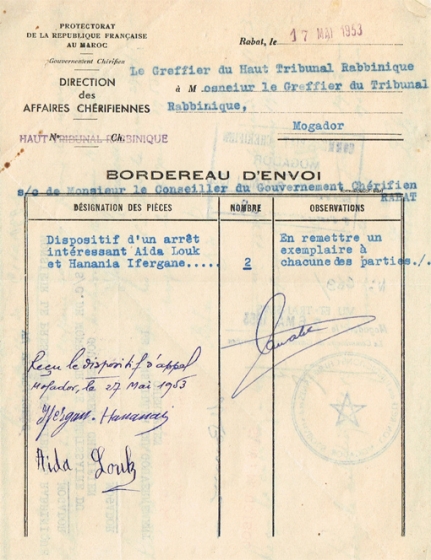 PROTECTORAT
DE LA REPUBLIQUE FRANÇAISE
AU MAROC
Gouvernement Chérifien
DIRECTION
des
AFFAIRES CHÉRIFIENNES
N° Ch.
HAUT TRIBUNAL RABBINIQUE
Rabat, le 17 MAI 1953
Le Greffier du Haut Tribunal Rabbinique
à Mosneiur le Greffier du Tribunal
Rabbinique,
Mogador
BORDEREAU D'ENVOI
s/c de Monsieur le Conseiller du Gouvernement Chérifien
RABAT
DÉSIGNATION DES PIÈCES NOMBRE OBSERVATIONS
Dispositif d'un arrêt
intéressant Aida Louk
et Hanania Ifergane.....
2
En remettre un
exemplaire à
chacune des parties./.
Reçu le dispositif d'appel
Mogador, le 27 Mai 1953
Aida Louk